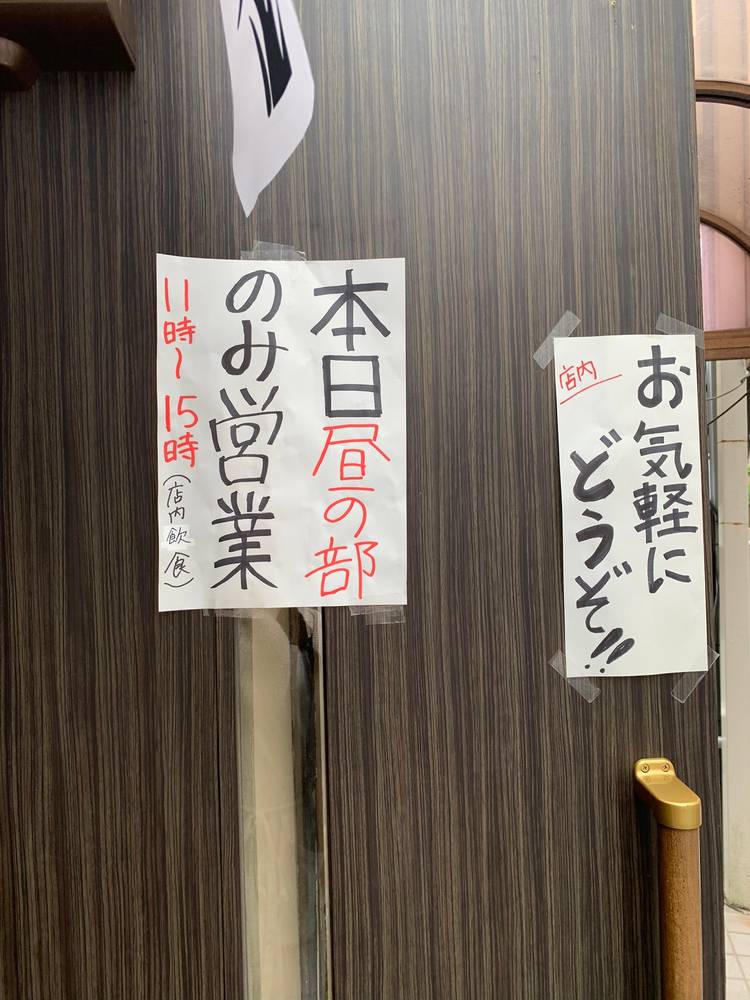 本日昼の部
のみ営業
11時〜15時(店内飲食)
店内
お気軽に
どうぞ!!